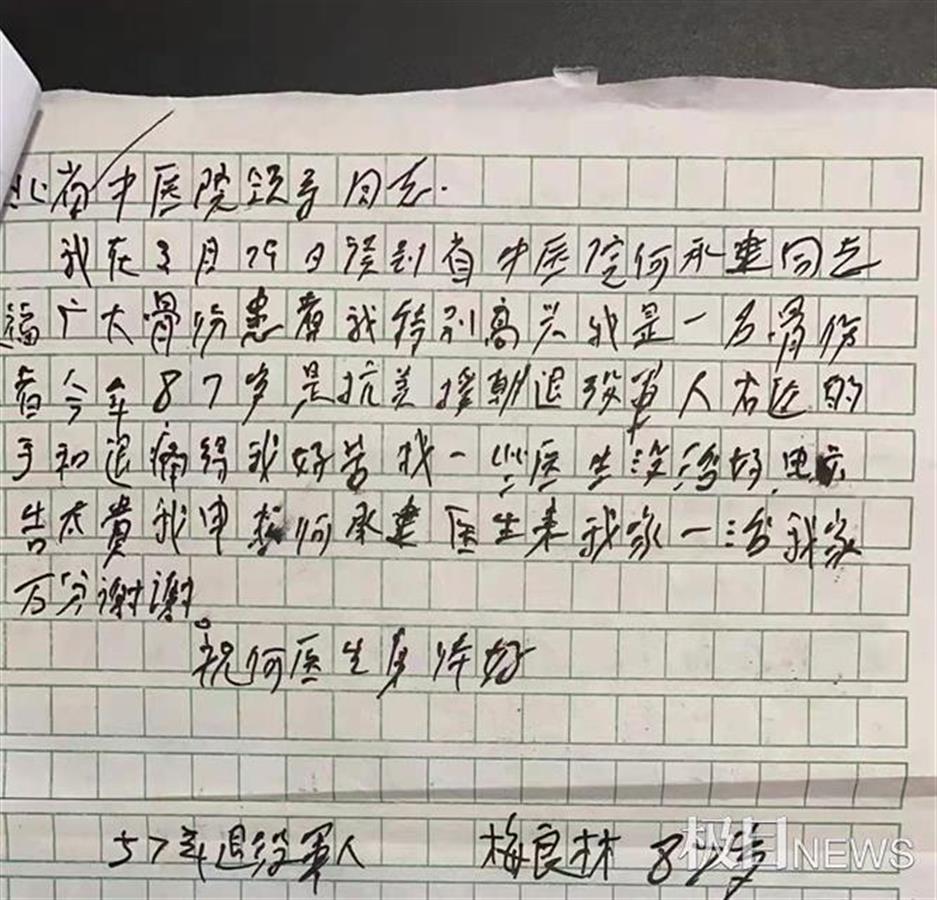 北省中医院领导同志.
我在3月29日读到省中医院何承建同志
造福广大骨伤患者我特别高兴我是一名骨伤
者今年87岁是抗美援朝退役军人右边的
手和退痛得我好苦找一些医生没治好
告太贵我申 何承建医生来我家一治我家
万分谢谢。
祝何医生身体好
57年退役军人 梅良林 87岁
极目NEWS